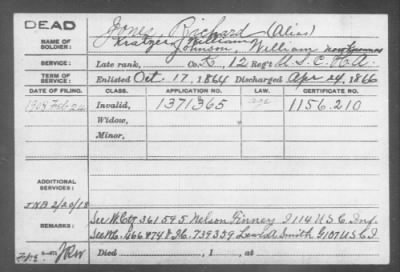 DEAD
Jones, Richard (Alias)
Kratzer William
NAME OF SOLDIER: Johnson, William now
SERVICE: Late rank, Co. K, 12 Reg't U.S.C.H.A.
TERM OF SERVICE: Enlisted Oct. 17, 1864 Discharged Apr 24, 1866
DATE OF FILING. CLASS. APPLICATION NO. LAW. CERTIFICATE NO.
1908 Feb 26 Invalid, 1371365 age 1156.210
Widow,
Minor,
ADDITIONAL SERVICES:
INB 2/20/18
REMARKS: See W. Ctf 361595 Nelson Finney I 114 U S C Inf.
See Mc. 466874 & Ic. 739309 Lewis A Smith G 107 U S C I
Died , 1 , at